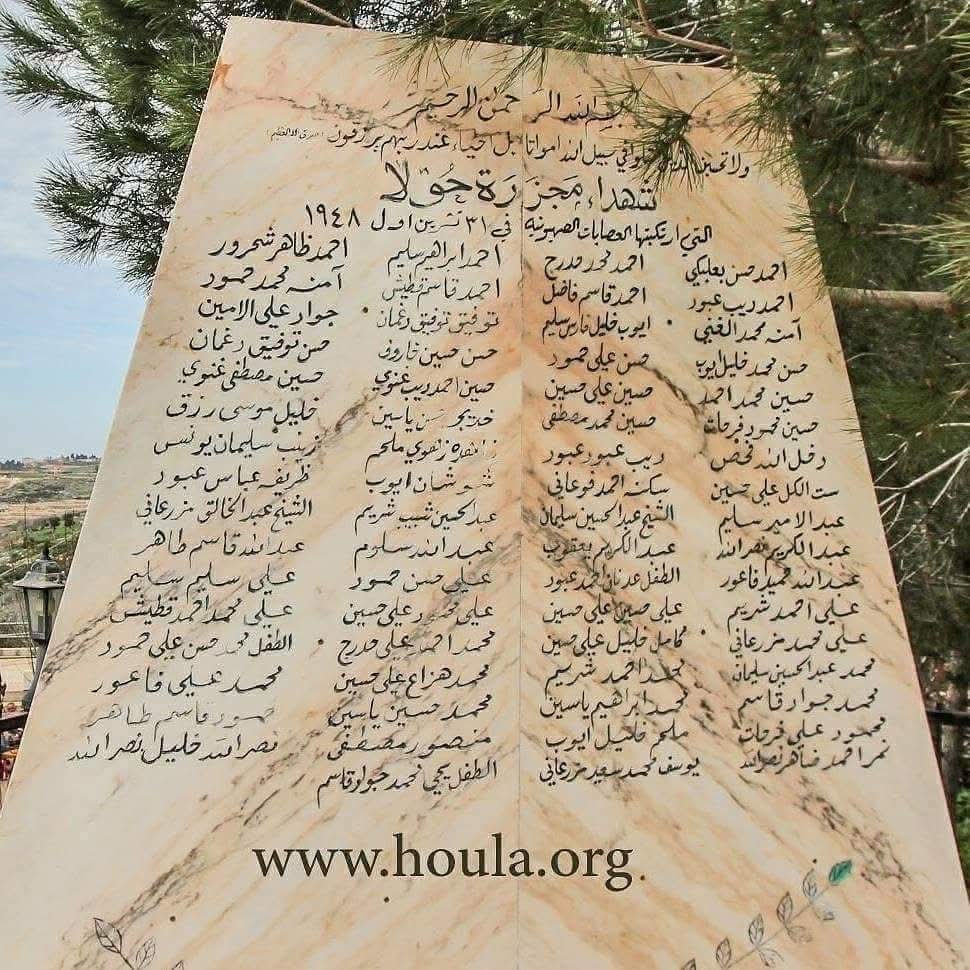 بسم الله الرحمن الرحيم
ولا تحسبن الذين قتلوا في سبيل الله امواتا بل احياء عند ربهم يرزقون (صدق الله العظيم)
شهداء مجزرة حولا
التي ارتكبتها العصابات الصهيونية في ٣١ تشرين اول ١٩٤٨
احمد حسن بعلبكي
احمد ديب عبود
آمنه محمد الغني
حسن محمد خليل ايوب
حسين محمد احمد
حسين محمود فرحات
دخل الله فحص
ست الكل علي حسين
عبد الامير سليم
عبد الكريم نصر الله
عبد الله حميد فاعور
علي احمد شريم
علي محمد مزرعاني
محمد عبد الحسين سليمان
محمد جواد قاسم
محمود علي فرحات
نمر احمد ضاهر نصر الله
احمد محمد مدرج
احمد قاسم فاضل
ايوب خليل فارس سليم
حسن علي حمود
حسين علي حسين
حسين محمد مصطفى
ديب عبود عبود
سكنه احمد فوعاني
الشيخ عبد الحسين سليمان
عبد الكريم يعقوب
الطفل عدنان احمد عبود
علي حسين علي حسين
كامل خليل علي حسين
محمد احمد شريم
محمد ابراهيم ياسين
ملحم خليل ايوب
يوسف محمد سعيد مزرعاني
احمد ابراهيم سليم
احمد قاسم قطيش
توفيق توفيق دغمان
حسن حسين فاروق
حسين احمد ديب غنوي
خديجه حسن ياسين
ملحم
شوشان ايوب
عبد الحسين شبيب شريم
عبد الله سلوم
علي حسن حمود
علي محمود علي حسين
محمد احمد علي مدرج
محمد هزاع علي حسين
محمد حسين ياسين
منصور مصطفى
الطفل يحي محمد جواد قاسم
احمد ظاهر شحرور
آمنه محمد حمود
جواد علي الامين
حسن توفيق دغمان
حسين مصطفى غنوي
خليل موسى رزق
زينب سليمان يونس
ظريفه عباس عبود
الشيخ عبد الخالق مزرعاني
عبد الله قاسم طاهر
علي سليم سليم
علي محمد احمد قطيش
الطفل محمد حسن علي حمود
محمد علي فاعور
حمود قاسم طاهر
نصر الله خليل نصر الله
www.houla.org